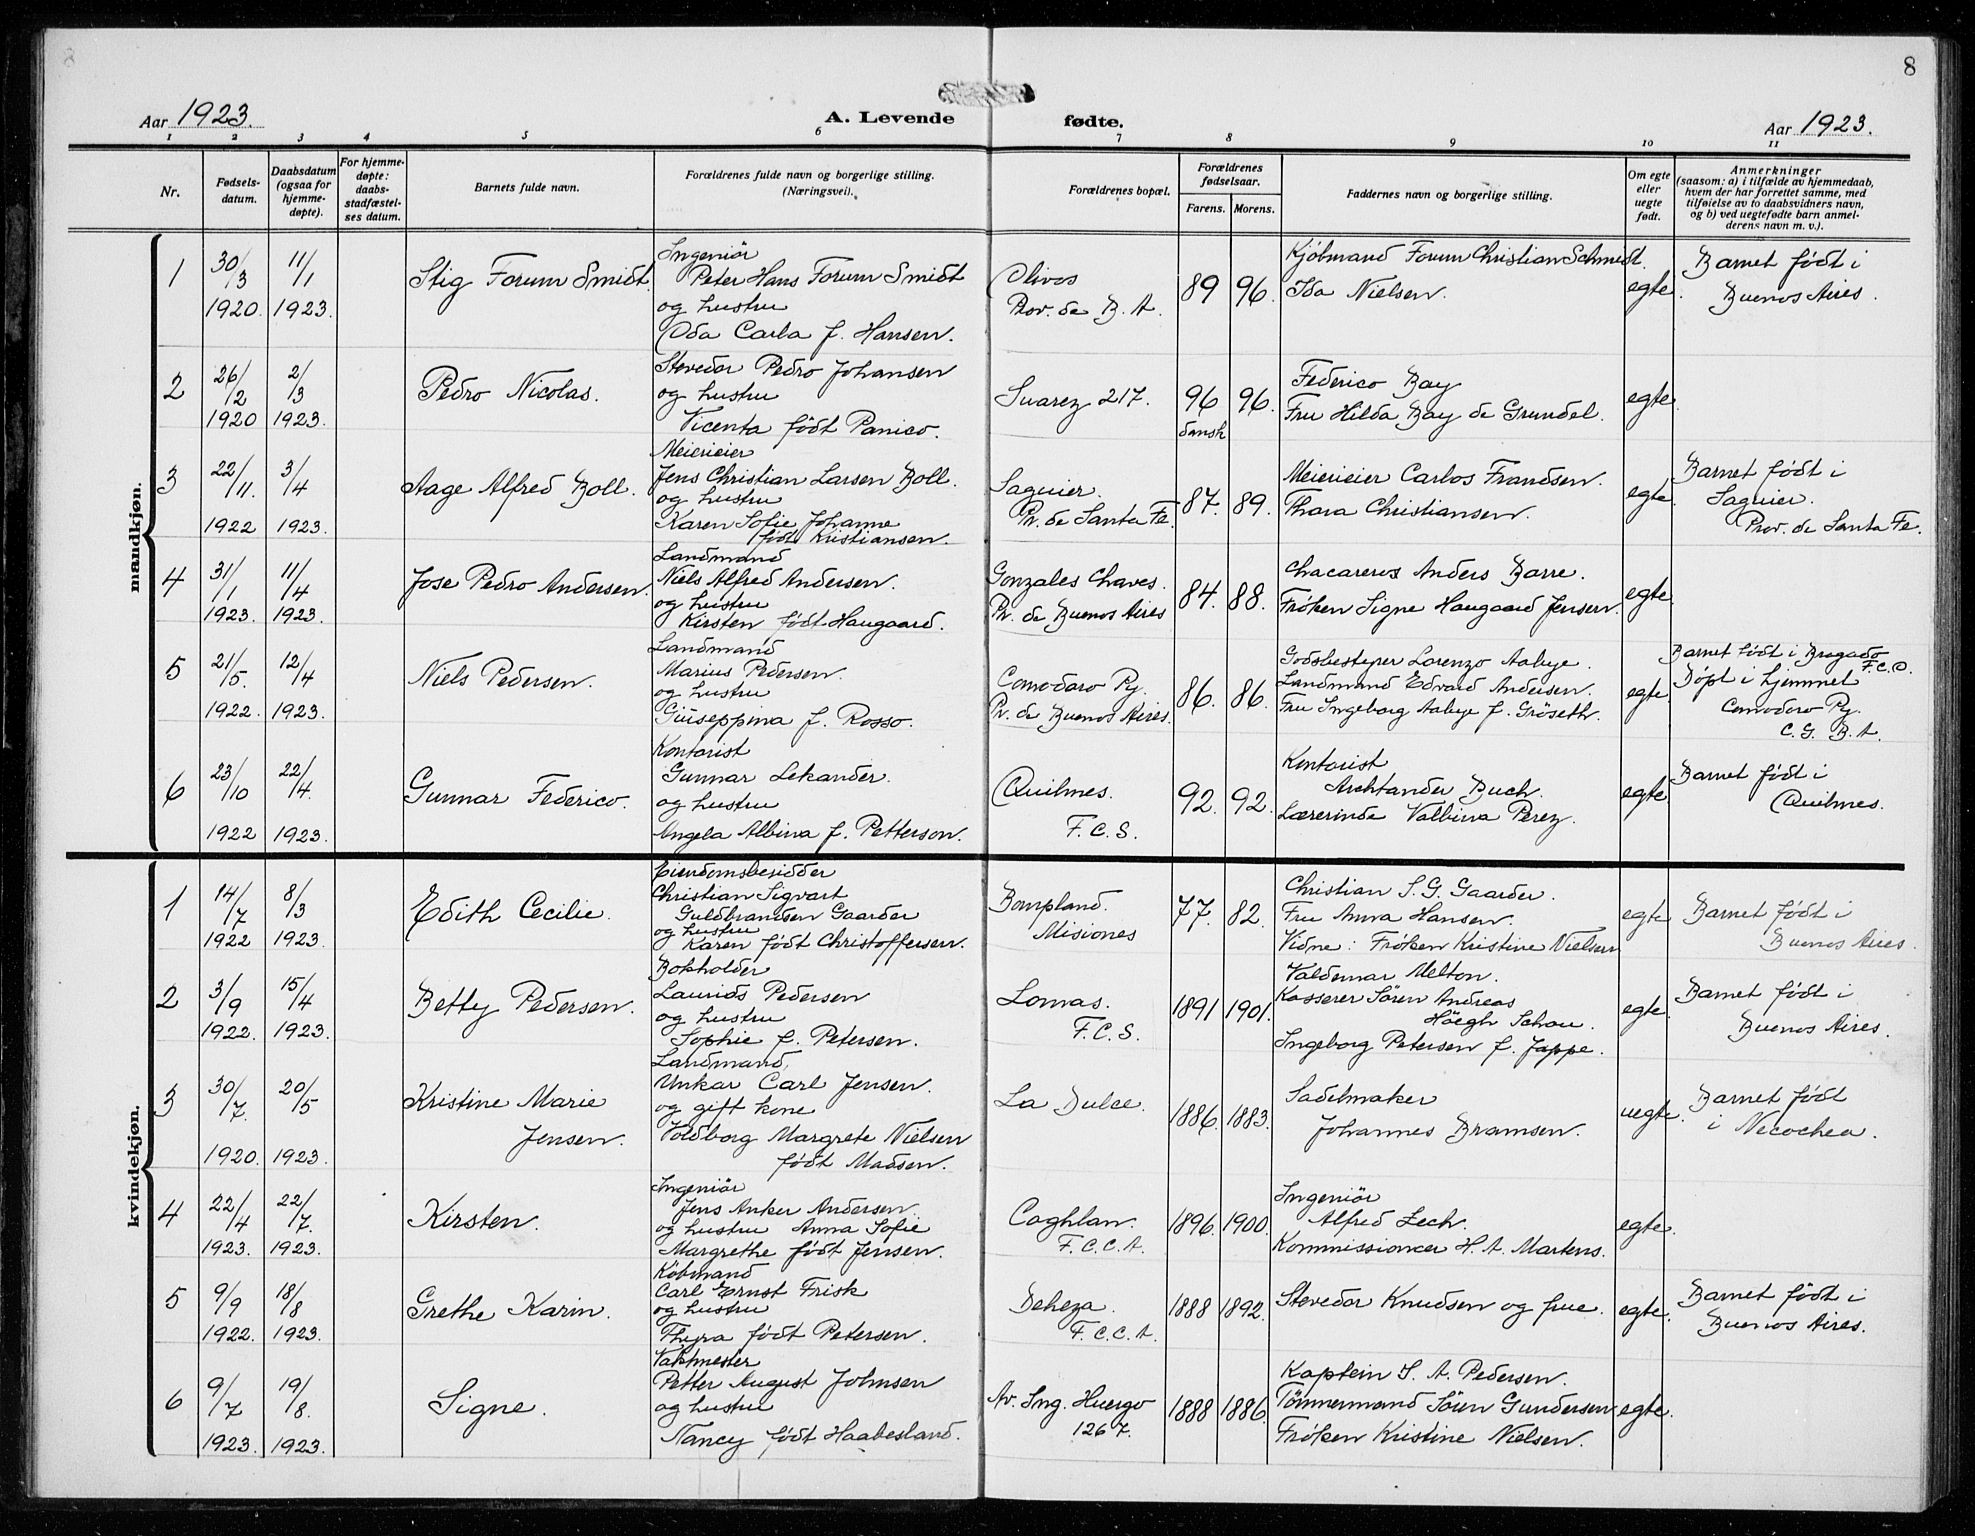 8
Aar 1923.
A. Levende fødte.
Aar 1923.
1 2 3 4 5 6 7 8 9 10 11
Nr.
Fødsels-
datum.
Daabsdatum
(ogsaa for
hjemme-
døpte).
For hjemme-
døpte:
daabs-
stadfæstel-
ses datum.
Barnets fulde navn.
Forældrenes fulde navn og borgerlige stilling.
(Næringsvei).
Forældrenes bopæl.
Forældrenes
fødselsaar.
Farens. Morens.
Faddernes navn og borgerlige stilling.
Om egte
eller
uegte
født.
Anmerkninger
(saasom: a) i tilfælde av hjemmedaab,
hvem der har forrettet samme, med
tilføielse av to daabsvidners navn,
og b) ved uegtefødte barn anmel-
derens navn m. v.).
mandkjøn.
1
30/3
1920.
11/1
1923.
Stig Forum Smidt.
Ingeniör
Peter Hans Forum Smidt
og hustru
Oda Carla f. Hansen.
Olivos
Prov. de B. A.
89 96.
Kjöbmand Forum Christian Schmidt.
Ida Nielsen.
egte.
Barnet født i
Buenos Aires.
2
26/2
1920
2/3
1923.
Pedro Nicolas.
Stevedor Pedro Johansen
og hustru
Vicenta født Panico.
Suarez 217.
96 96.
dansk
Federico Bay
Fru Hilda Bay de Grundel.
egte.
3
22/11.
1922
3/4
1923.
Aage Alfred Boll.
Meierieier
Jens Christian Larsen Boll.
og hustru
Karen Sofie Johanne
født Kristiansen.
Saguier.
Pr. de Santa Fe.
87. 89.
Meierieier Carlos Frandsen.
Thora Christiansen.
egte.
Barnet født i
Saguier.
Prov. de Santa Fe.
4
31/1
1923.
11/4
1923.
Jose Pedro Andersen.
Landmand
Niels Alfred Andersen.
og hustru
Kirsten født Haugaard.
Gonzales Chaves.
Pr. de Buenos Aires
84. 88.
Chacareros Anders Barre.
Fröken Signe Haugaard Jensen.
egte.
5
21/5.
1922.
12/4
1923.
Niels Pedersen.
Landmand
Marius Pedersen.
og hustru
Giuseppina f. Rosso.
Comodoro Py.
Pr. de Buenos Aires.
86. 86.
Godsbestyrer Lorenzo Aabye.
Landmand Edvard Andersen.
Fru Ingeborg Aabye f. Gröseth.
egte.
Barnet født i Bragado
F.C.O.
Döpt i hjemmet
Comodoro Py.
C. G. B. A.
6
23/10
1922
22/4.
1923.
Gunnar Federico.
Kontorist
Gunnar Lekander.
og hustru
Angela Albina f. Petterson.
Quilmes.
F. C. S.
92. 92.
Kontorist
Archtander Buch.
Lærerinde Valbina Perez.
egte.
Barnet født i
Quilmes.
kvindekjøn.
1
14/7
1922
8/3
1923.
Edith Cecilie.
Eiendomsbesidder
Christian Sigvart
Guldbrandsen Gaarder
og hustru
Karen født Christoffersen.
Bompland.
Misiones
77. 82.
Christian S. G. Gaarder.
Fru Anna Hansen.
Vidne: Fröken Kristine Nielsen
egte.
Barnet født i
Buenos Aires.
2
3/9
1922.
15/4
1923.
Betty Pedersen.
Bokholder
Laurids Pedersen
og hustru
Sophie f. Petersen.
Lomas.
F. C. S.
1891 1901.
Valdemar Melton.
Kasserer Sören Andreas
Höegh Schou.
Ingeborg Petersen f. Jappe.
egte.
Barnet født i
Buenos Aires.
3
30/7.
1920.
20/5
1923.
Kristine Marie
Jensen.
Landmand,
Unkar Carl Jensen.
og gift kone
Voldborg Margrete Nielsen
født Madsen.
La Dulce.
1886. 1883.
Sadelmaker
Johannes Bramsen.
uegte.
Barnet født
i Necochea.
4
22/4
1923.
22/7.
1923.
Kirsten.
Ingeniör
Jens Anker Andersen.
og hustru Anna Sofie
Margrethe født Jensen.
Coghlan.
F. C. C. A.
1896. 1900.
Ingeniör
Alfred Zech.
Kommissioncer H. A. Martens.
egte.
5
9/9
1922.
18/8
1923.
Grethe Karin.
Köbmand
Carl Ernst Frisk
og hustru
Thyra født Petersen.
Deheza.
F. C. C. A.
1888 1892.
Stevedor Knudsen og frue.
egte.
Barnet født i
Buenos Aires.
6
9/7
1923.
19/8.
1923.
Signe.
Vaktmester
Petter August Johnsen
og hustru
Nancy født Haabesland.
Av. Ing. Huergo
1267.
1888 1886.
Kaptein S. A. Pedersen.
Tömmermand Sören Gundersen
Fröken Kristine Nielsen.
egte.